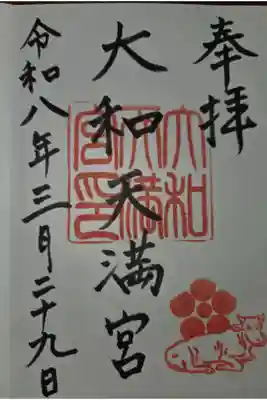 奉拝
大和天満宮
大和天満宮印
令和八年三月二十九日